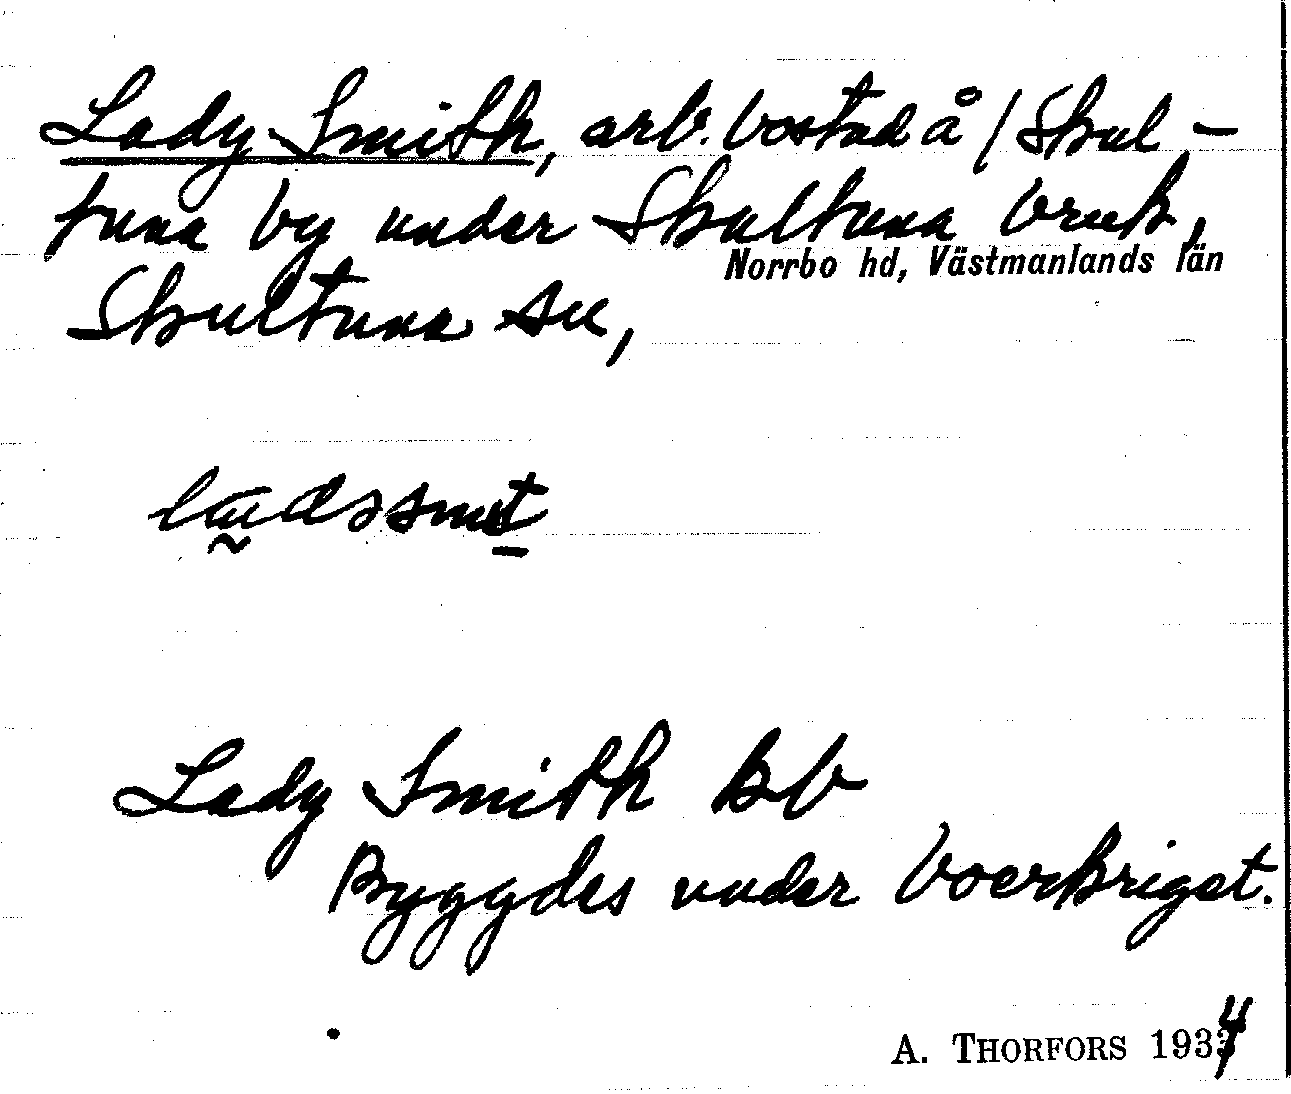 Lady Smith, arb.bostad å / Skul-
tuna by under Skultuna bruk,
Norrbo hd, Västmanlands län
Skultuna sn,
Lady Smith Bb
Byggdes under boerkriget.
A. THORFORS 1934